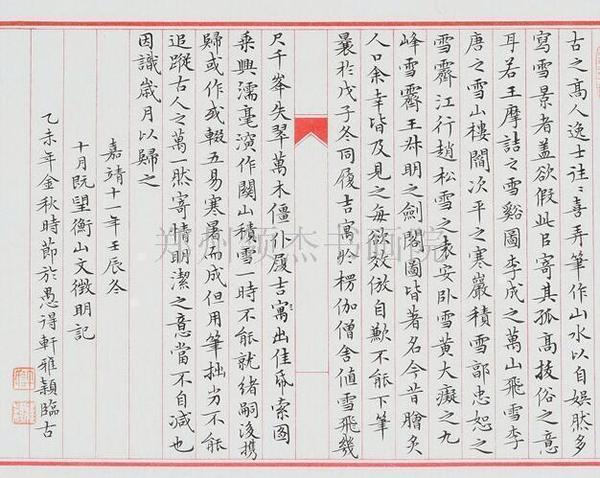 古之髙人逸士往々喜弄筆作山水以自娛然多
寫雪景者盖欲假此㠯寄其孤髙拔俗之意
耳若王摩詰之雪谿圖李成之萬山飛雪李
唐之雪山樓閣次平之寒巖積雪郭忠恕之
雪霽江行趙松雪之袁安卧雪黃大癡之九
峰雪霽王叔明之劍閣圖皆著名今昔膾炙
人口余幸皆及見之每欲效倣自歉不能下筆
曩於戊子冬同履吉寓於楞伽僧舍值雪飛幾
尺千峯失翠萬木僵仆履吉寓出佳帋索圖
乗興濡毫演作関山積雪一時不能就緒嗣後携
歸或作或輟五易寒暑而成但用筆拙劣不能
追蹤古人之萬一然寄情明潔之意當不自減也
因識歲月以歸之
嘉靖十一年壬辰冬
十月既望衡山文徵明記
乙未年金秋時節於愚得軒雅穎臨古